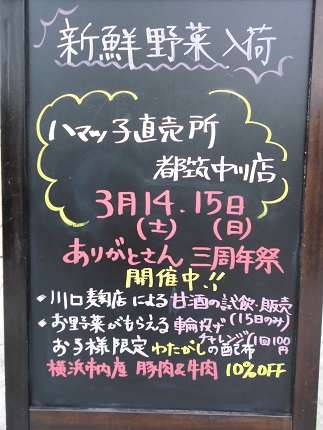 新鮮野菜入荷
ハマッ子直売所
都筑中川店
3月14.15日
(土) (日)
ありがとさん 三周年祭
開催中!!
川口麹店による甘酒の試飲、販売
お野菜がもらえる輪投げ(15日のみ)
チャレンジ(1回100円)
お子様限定 わたがしの配布
横浜市内産 豚肉&牛肉 10%OFF